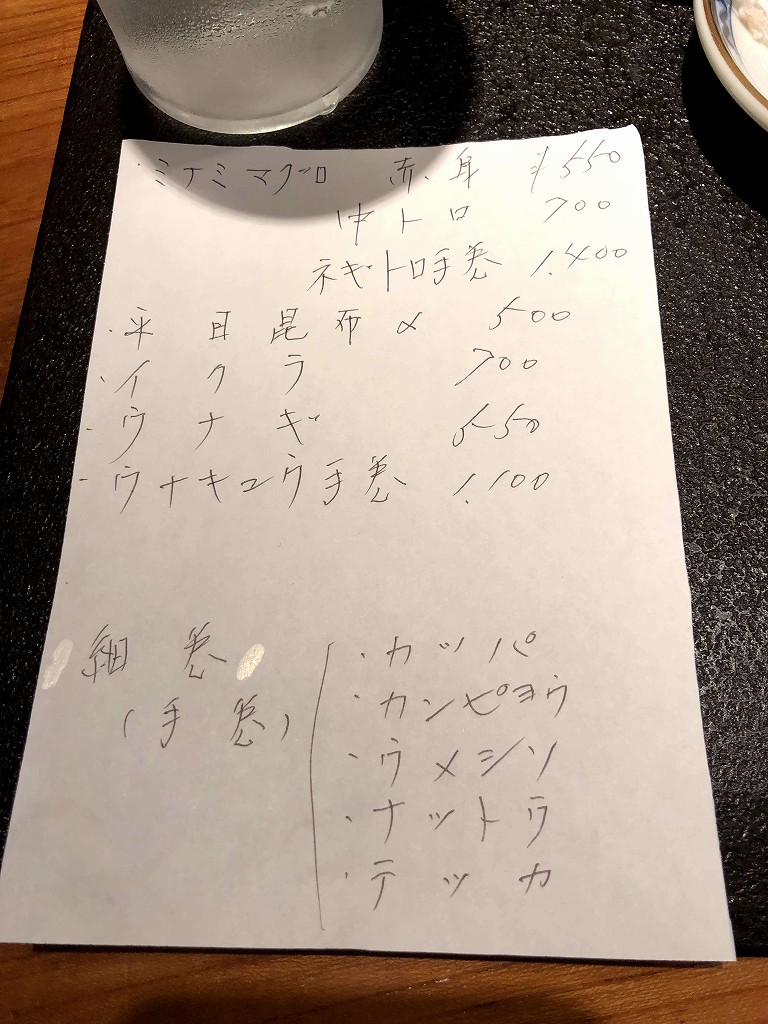 ・ミナミマグロ 赤身 ¥550
中トロ 700
ネギトロ手巻 1.400
・平目昆布〆 500
・イクラ 700
・ウナギ 550
・ウナキュウ手巻 1.100
細巻
(手巻)
・カッパ
・カンピョウ
・ウメシソ
・ナットウ
・テッカ